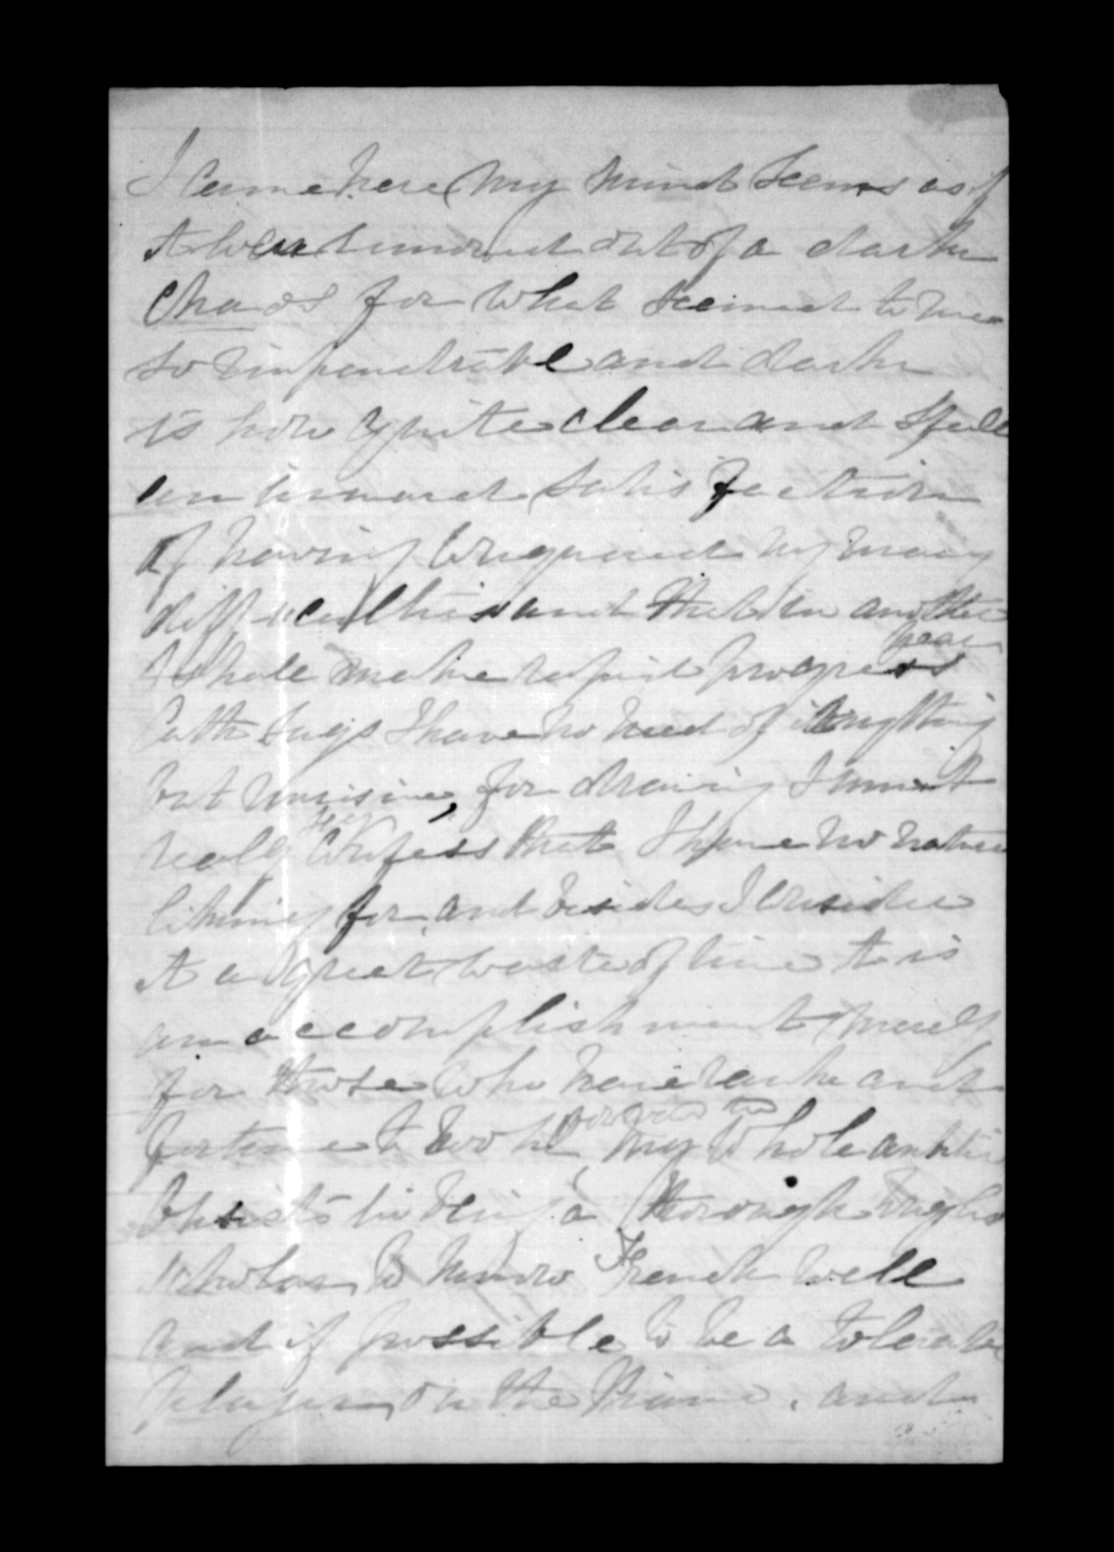 I came here my mind seems as if
it were turned out of a dark
chaos for what seemed to me
so impenetrable and dark
is now quite clear and I feel
an inward satisfaction
of having conquered my many
difficulties and that in another
year
I shall make rapid progress
says I have no need of anything
but music, for drawing I must
really confess that I have no natural
liking for, and besides I consider
it a great waste of time it is
an accomplishment merely
for those who have rank and
fortune to
my whole
consists in being a thorough English
scholar, to know French well
and if possible to be a tolerable
player on the Piano. and